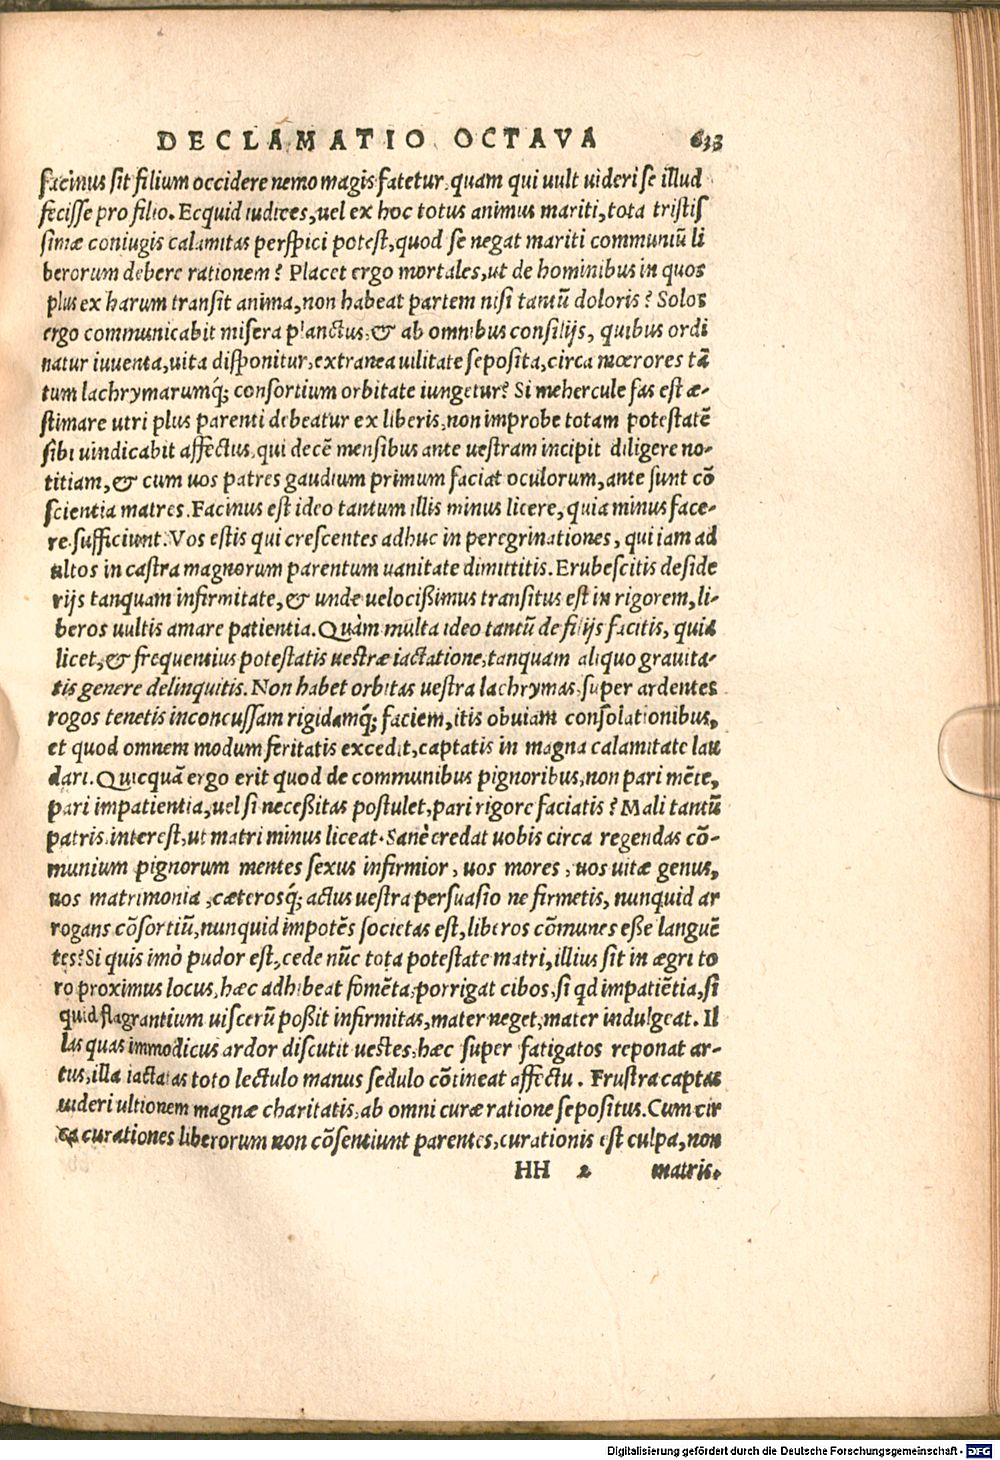 DECLAMATIO OCTAVA 633
facinus sit filium occidere nemo magis fatetur, quam qui uult uideri se illud
fecisse pro filio. Ecquid iudices, uel ex hoc totus animus mariti, tota tristis
simæ coniugis calamitas perspici potest, quod se negat mariti communiū li
berorum debere rationem? Placet ergo mortales, ut de hominibus in quos
plus ex harum transit anima, non habeat partem nisi tantū doloris? Solos
ergo communicabit misera planctus, & ab omnibus consilijs, quibus ordi
natur iuuenta, uita disponitur, extranea uilitate seposita, circa mœrores tā
tum lachrymarumq́; consortium orbitate iungetur? Si mehercule fas est æ-
stimare utri plus parenti debeatur ex liberis, non improbe totam potestatē
sibi uindicabit affectus, qui decē mensibus ante uestram incipit diligere no-
titiam, & cum uos patres gaudium primum faciat oculorum, ante sunt cō
scientia matres. Facinus est ideo tantum illis minus licere, quia minus face-
re sufficiunt. Vos estis qui crescentes adhuc in peregrinationes, qui iam ad
ultos in castra magnorum parentum uanitate dimittitis. Erubescitis deside
rijs tanquam infirmitate, & unde uelocißimus transitus est in rigorem, li-
beros uultis amare patientia. Quàm multa ideo tantū de filijs facitis, quia
licet, & frequentius potestatis uestræ iactatione, tanquam aliquo grauita-
tis genere delinquitis. Non habet orbitas uestra lachrymas, super ardentes
rogos tenetis inconcussam rigidamq́; faciem, itis obuiam consolationibus,
et quod omnem modum feritatis excedit, captatis in magna calamitate lau
dari. Quicquā ergo erit quod de communibus pignoribus, non pari mēte,
pari impatientia, uel si neceßitas postulet, pari rigore faciatis? Mali tantū
patris interest, ut matri minus liceat. Sanè credat uobis circa regendas cō-
munium pignorum mentes sexus infirmior, uos mores, uos uitæ genus,
uos matrimonia, cæterosq́; actus uestra persuasio ne firmetis, nunquid ar
rogans cōsortiū, nunquid impotēs societas est, liberos cōmunes eße languē
tes? Si quis imò pudor est, cede nūc tota potestate matri, illius sit in ægri to
ro proximus locus, hæc adhibeat fomēta, porrigat cibos, si qd impatiētia, si
quid flagrantium uiscerū poßit infirmitas, mater neget, mater indulgeat. Il
las quas immodicus ardor discutit uestes, hæc super fatigatos reponat ar-
tus, illa iactatas toto lectulo manus sedulo cōtineat affectu. Frustra captas
uideri ultionem magnæ charitatis, ab omni curæ ratione sepositus. Cum cir
ca curationes liberorum non cōsentiunt parentes, curationis est culpa, non
HH 2 matris.
Digitalisierung gefördert durch die Deutsche Forschungsgemeinschaft - DFG